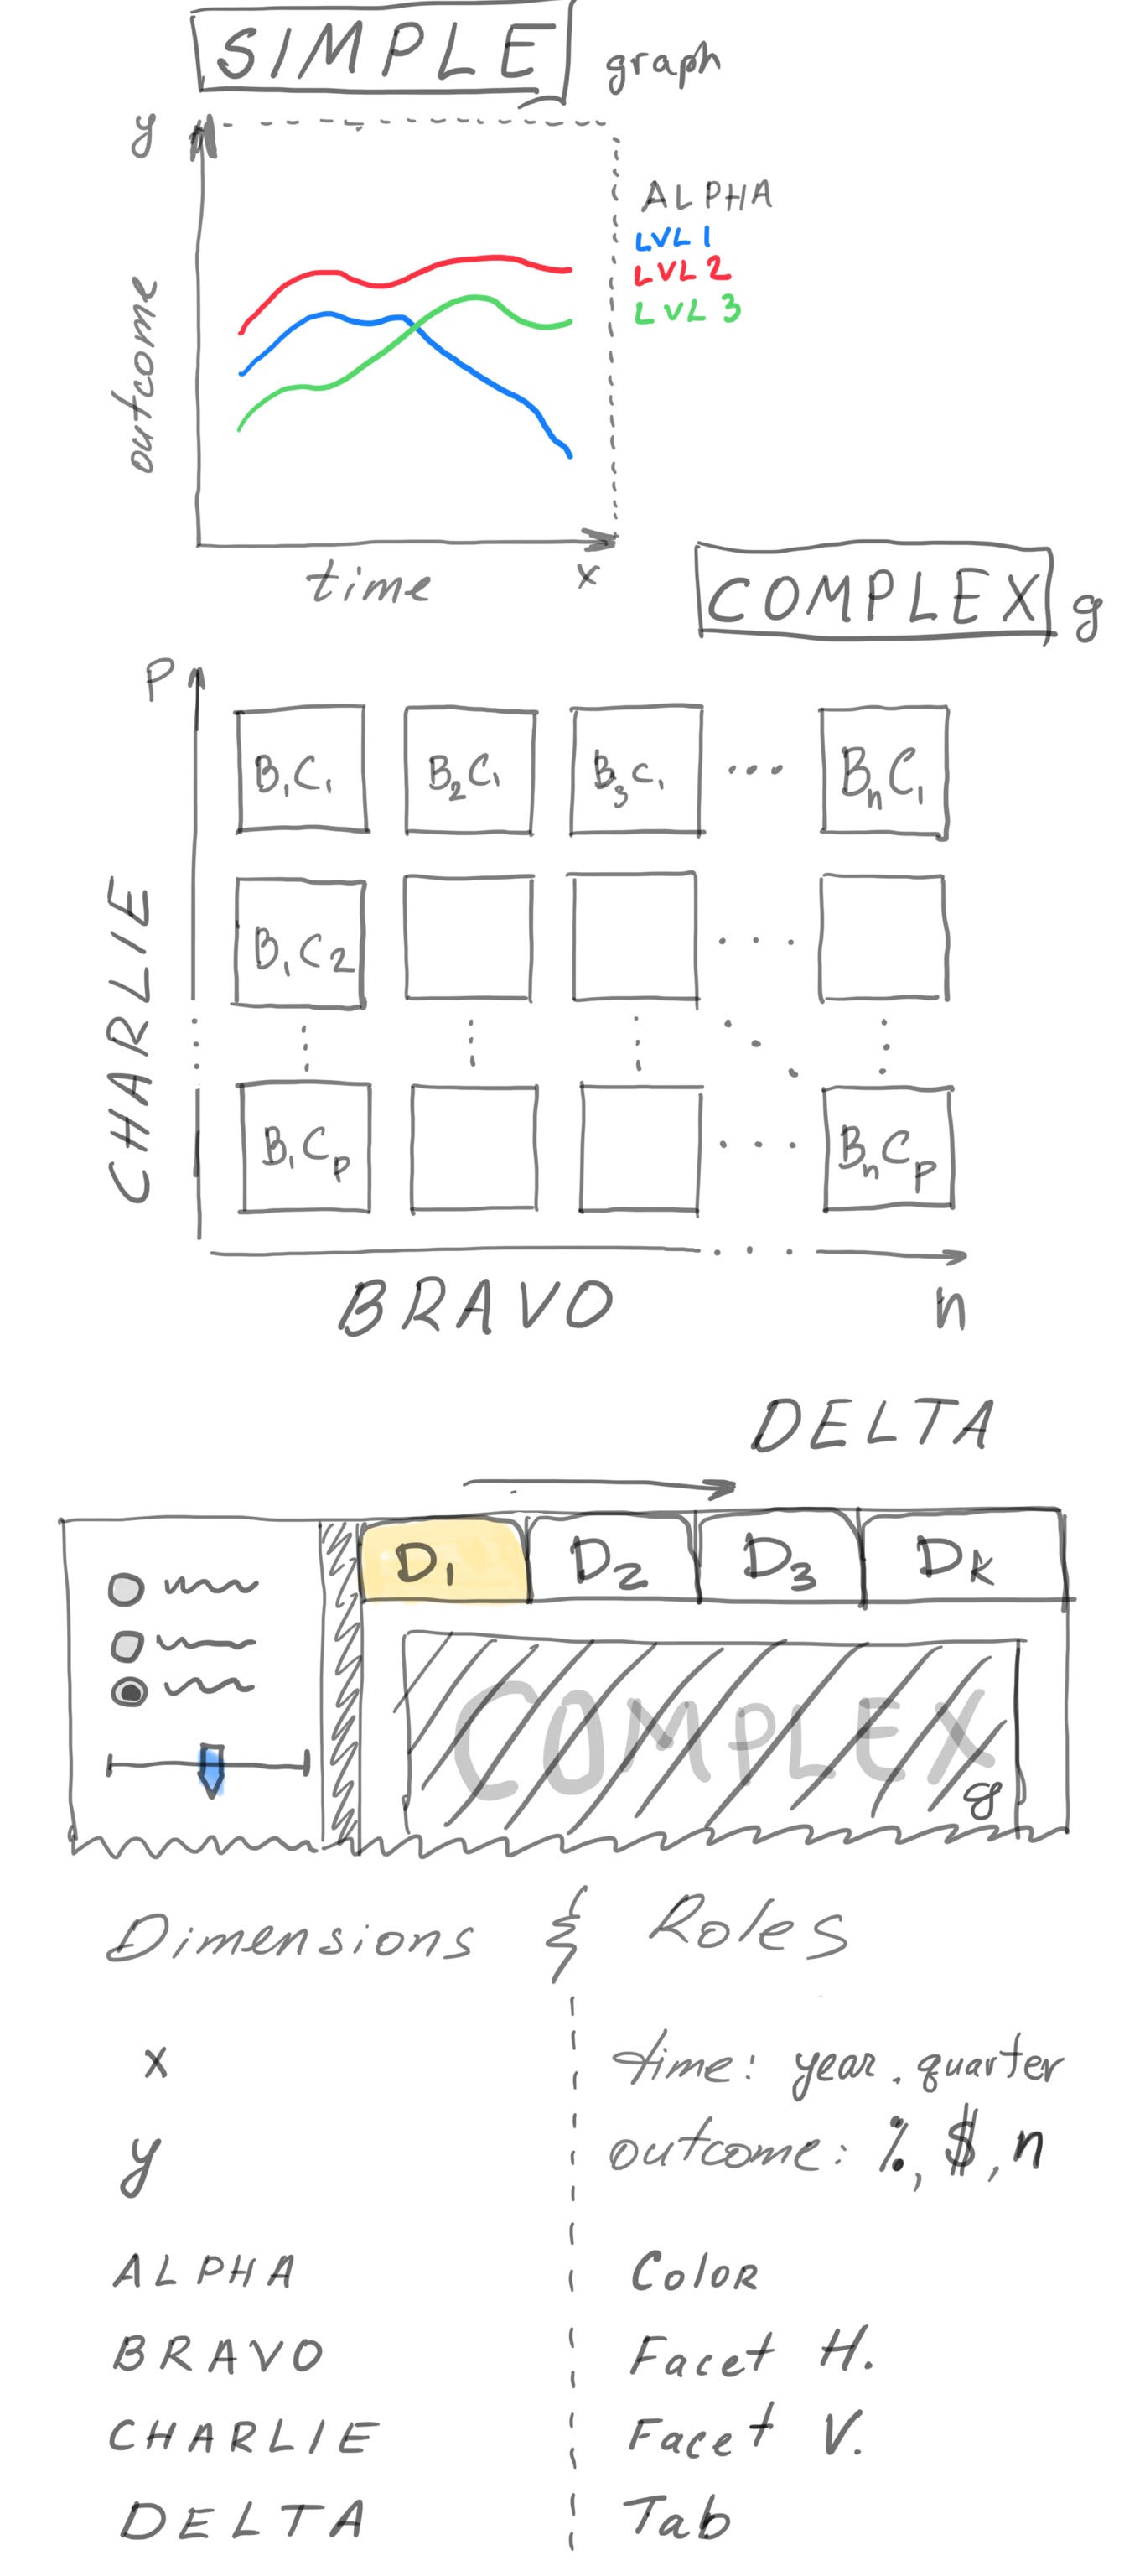 SIMPLE graph
y
ALPHA
LVL 1
LVL 2
LVL 3
outcome
time x
COMPLEX g
P
B1C1 B2C1 B3C1 ... BnC1
B1C2 ...
CHARLIE
B1Cp ... BnCp
BRAVO n
DELTA
D1 D2 D3 DK
COMPLEX
g
Dimensions & Roles
x time: year. quarter
y outcome: %, $, n
ALPHA Color
BRAVO Facet H.
CHARLIE Facet V.
DELTA Tab